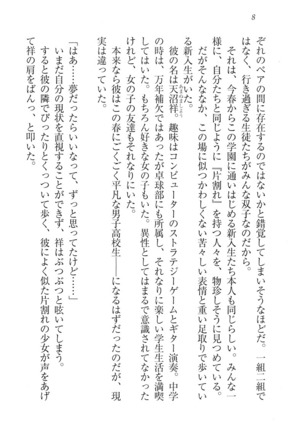 8
ぞれのペアの間に存在するのではないかと錯覚してしまいそうなほどだ。一組二組で
はなく、行き過ぎる生徒たちがみんな双子なのだから。
それは、今春からこの学園に通いはじめる新入生たち本人も同じらしい。みんな一
様に、自分たちと同じくして『片割れ』を持つ人々を、物珍しそうに見つめている。
だがそんななか、この場に似つかわしくない苦々しい表情と重い足取りで歩いてい
る新入生がいた。
彼の名は天沼祥。趣味はコンピューターのストラテジーゲームとギター演奏。中学
の時は、万年補欠ではあったが卓球部にも所属し、それなりに楽しい学生生活を満喫
してはいた。もちろん好きな女の子もいた。異性としてはまるで意識されてなかった
けれど、女の子の友達も、それなりにいた。
本来なら彼はこの春にごくごく平凡な男子高校生――になるはずだったのだが、現
実は違っていた。
「はあ……夢だったらいいなって、ずっと思ってたけど……」
いまだ自分の現状を直視することができず、祥はぶつぶつと呟いてしまう。
すると彼の隣でぴったりとくっついて歩く、彼によく似た片割れの少女が声をあげ
て祥の肩をばんっ、と叩いた。